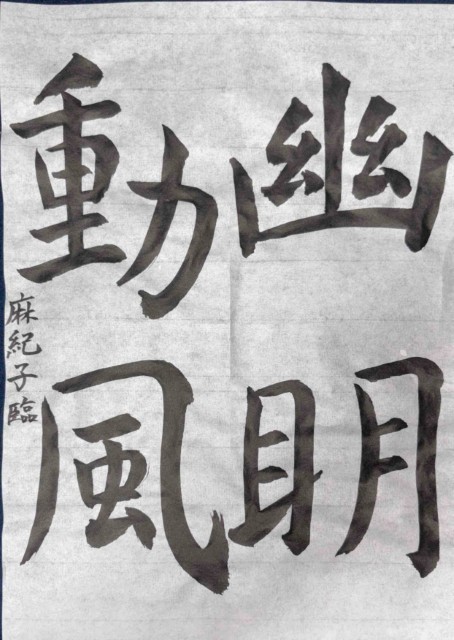 幽明
動風
麻紀子臨